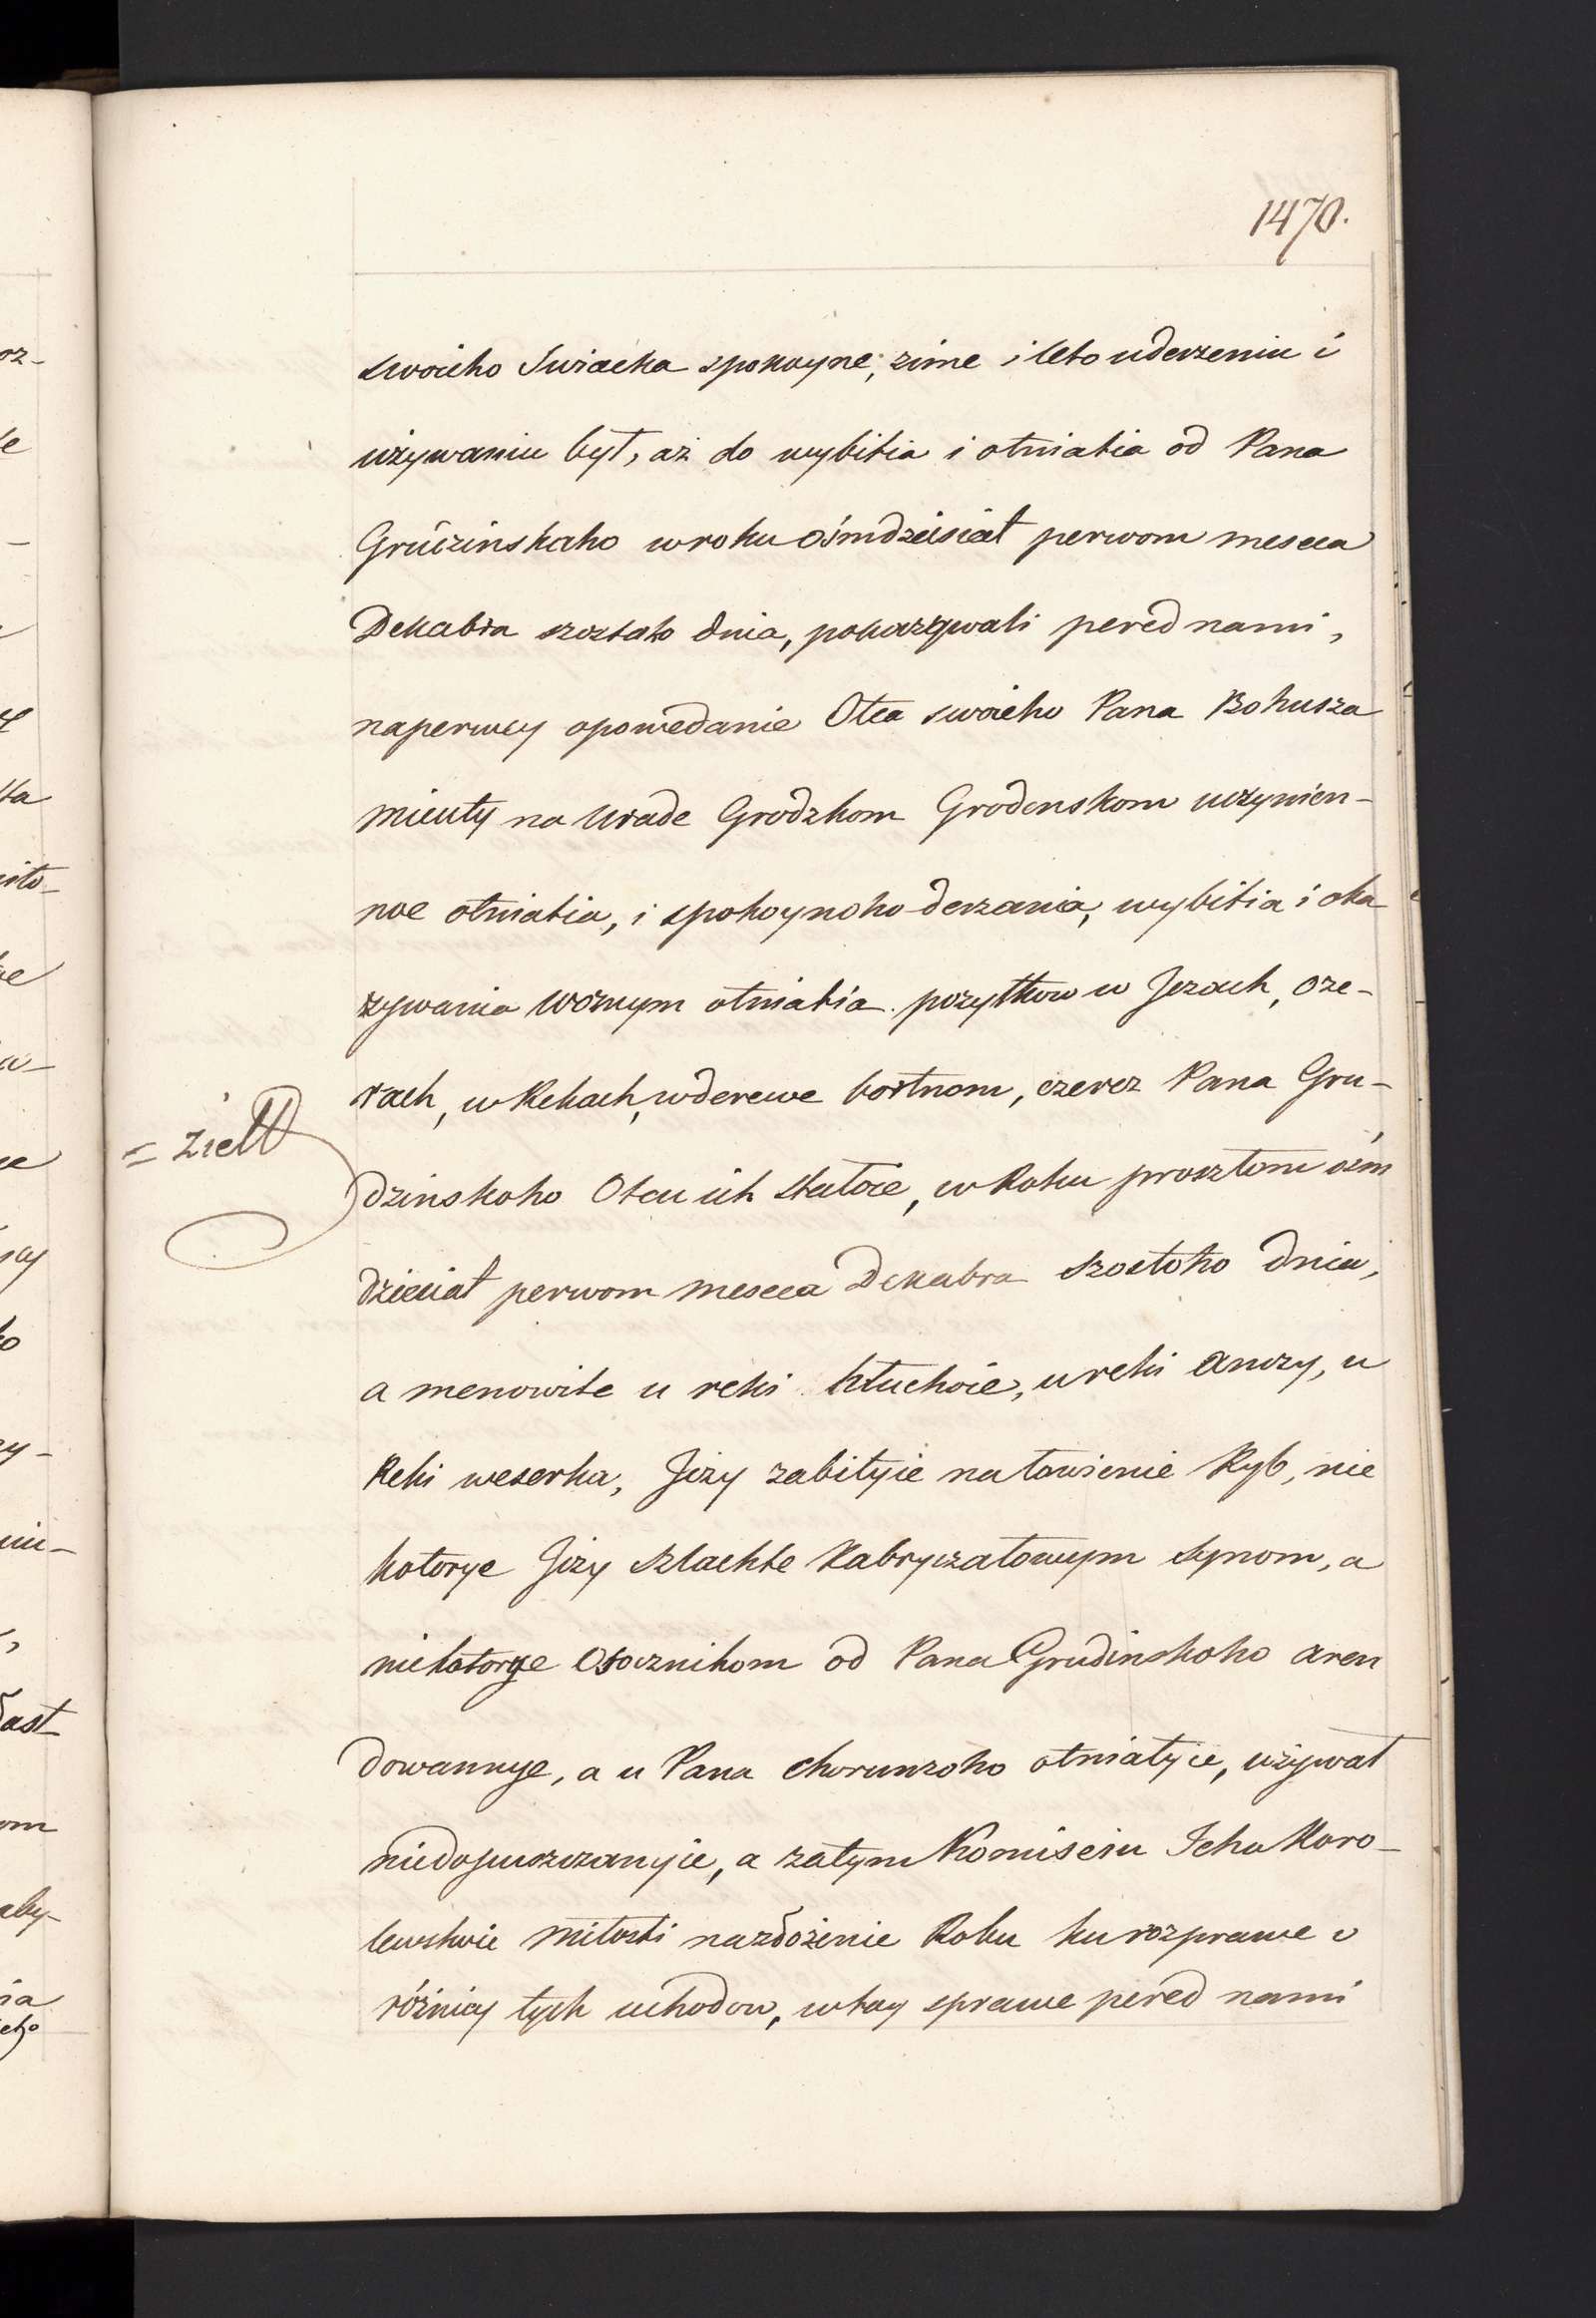 1470.
swoieho Swiacka spokoyne, zime i leto uderzeniu i
używaniu był, aż do wybitia i otniatia od Pana
Grudzinskaho w roku ośmdziesiat perwom meseca
Dekabra szostaho dnia, pokazywali pered nami,
naperwey opowedanie Otca swoieho Pana Bohusza
Mieuty na Urade Grodzkom Grodenskom uczynien-
noe otniatia, i spokoynoho derzania, wybitia i oka
zywania woznym otniatia pożytkow w Jezach, oze-
rach, w Rekach, w derewe bortnom, czerez Pana Gru-
dzinskoho Otcu ich stałoie, w Roku proszłom ośm
= zielU
dzieciat perwom meseca Dekabra szostoho dnia,
a menowite u reki Hłuchoie, u reki anczy, u
Reki weserka, Jizy zabityie na łowienie Ryb, nie
kotorye Jizy szlachte Kabryczatowym synom, a
niekotorye Osocznikom od Pana Grudinskoho aren
dowannye, a u Pana chorunzoho otniatyie, używat
niedopuszczanyie, a zatym Komiseiu Jeho Koro-
lewskoie Miłosti na złożenie Roku ku rozprawe o
różnicy tych uchodow, w toy sprawe pered nami